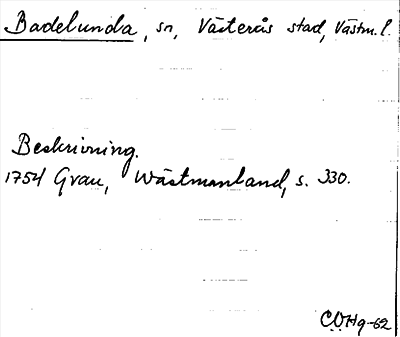 Badelunda, sn, Västerås stad, Västm. l.
Beskrivning.
1754 Grau, Wästmanland, s. 330.
COHg-62